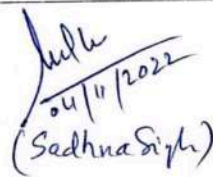 04/11/2022
(Sadhna Sigh)